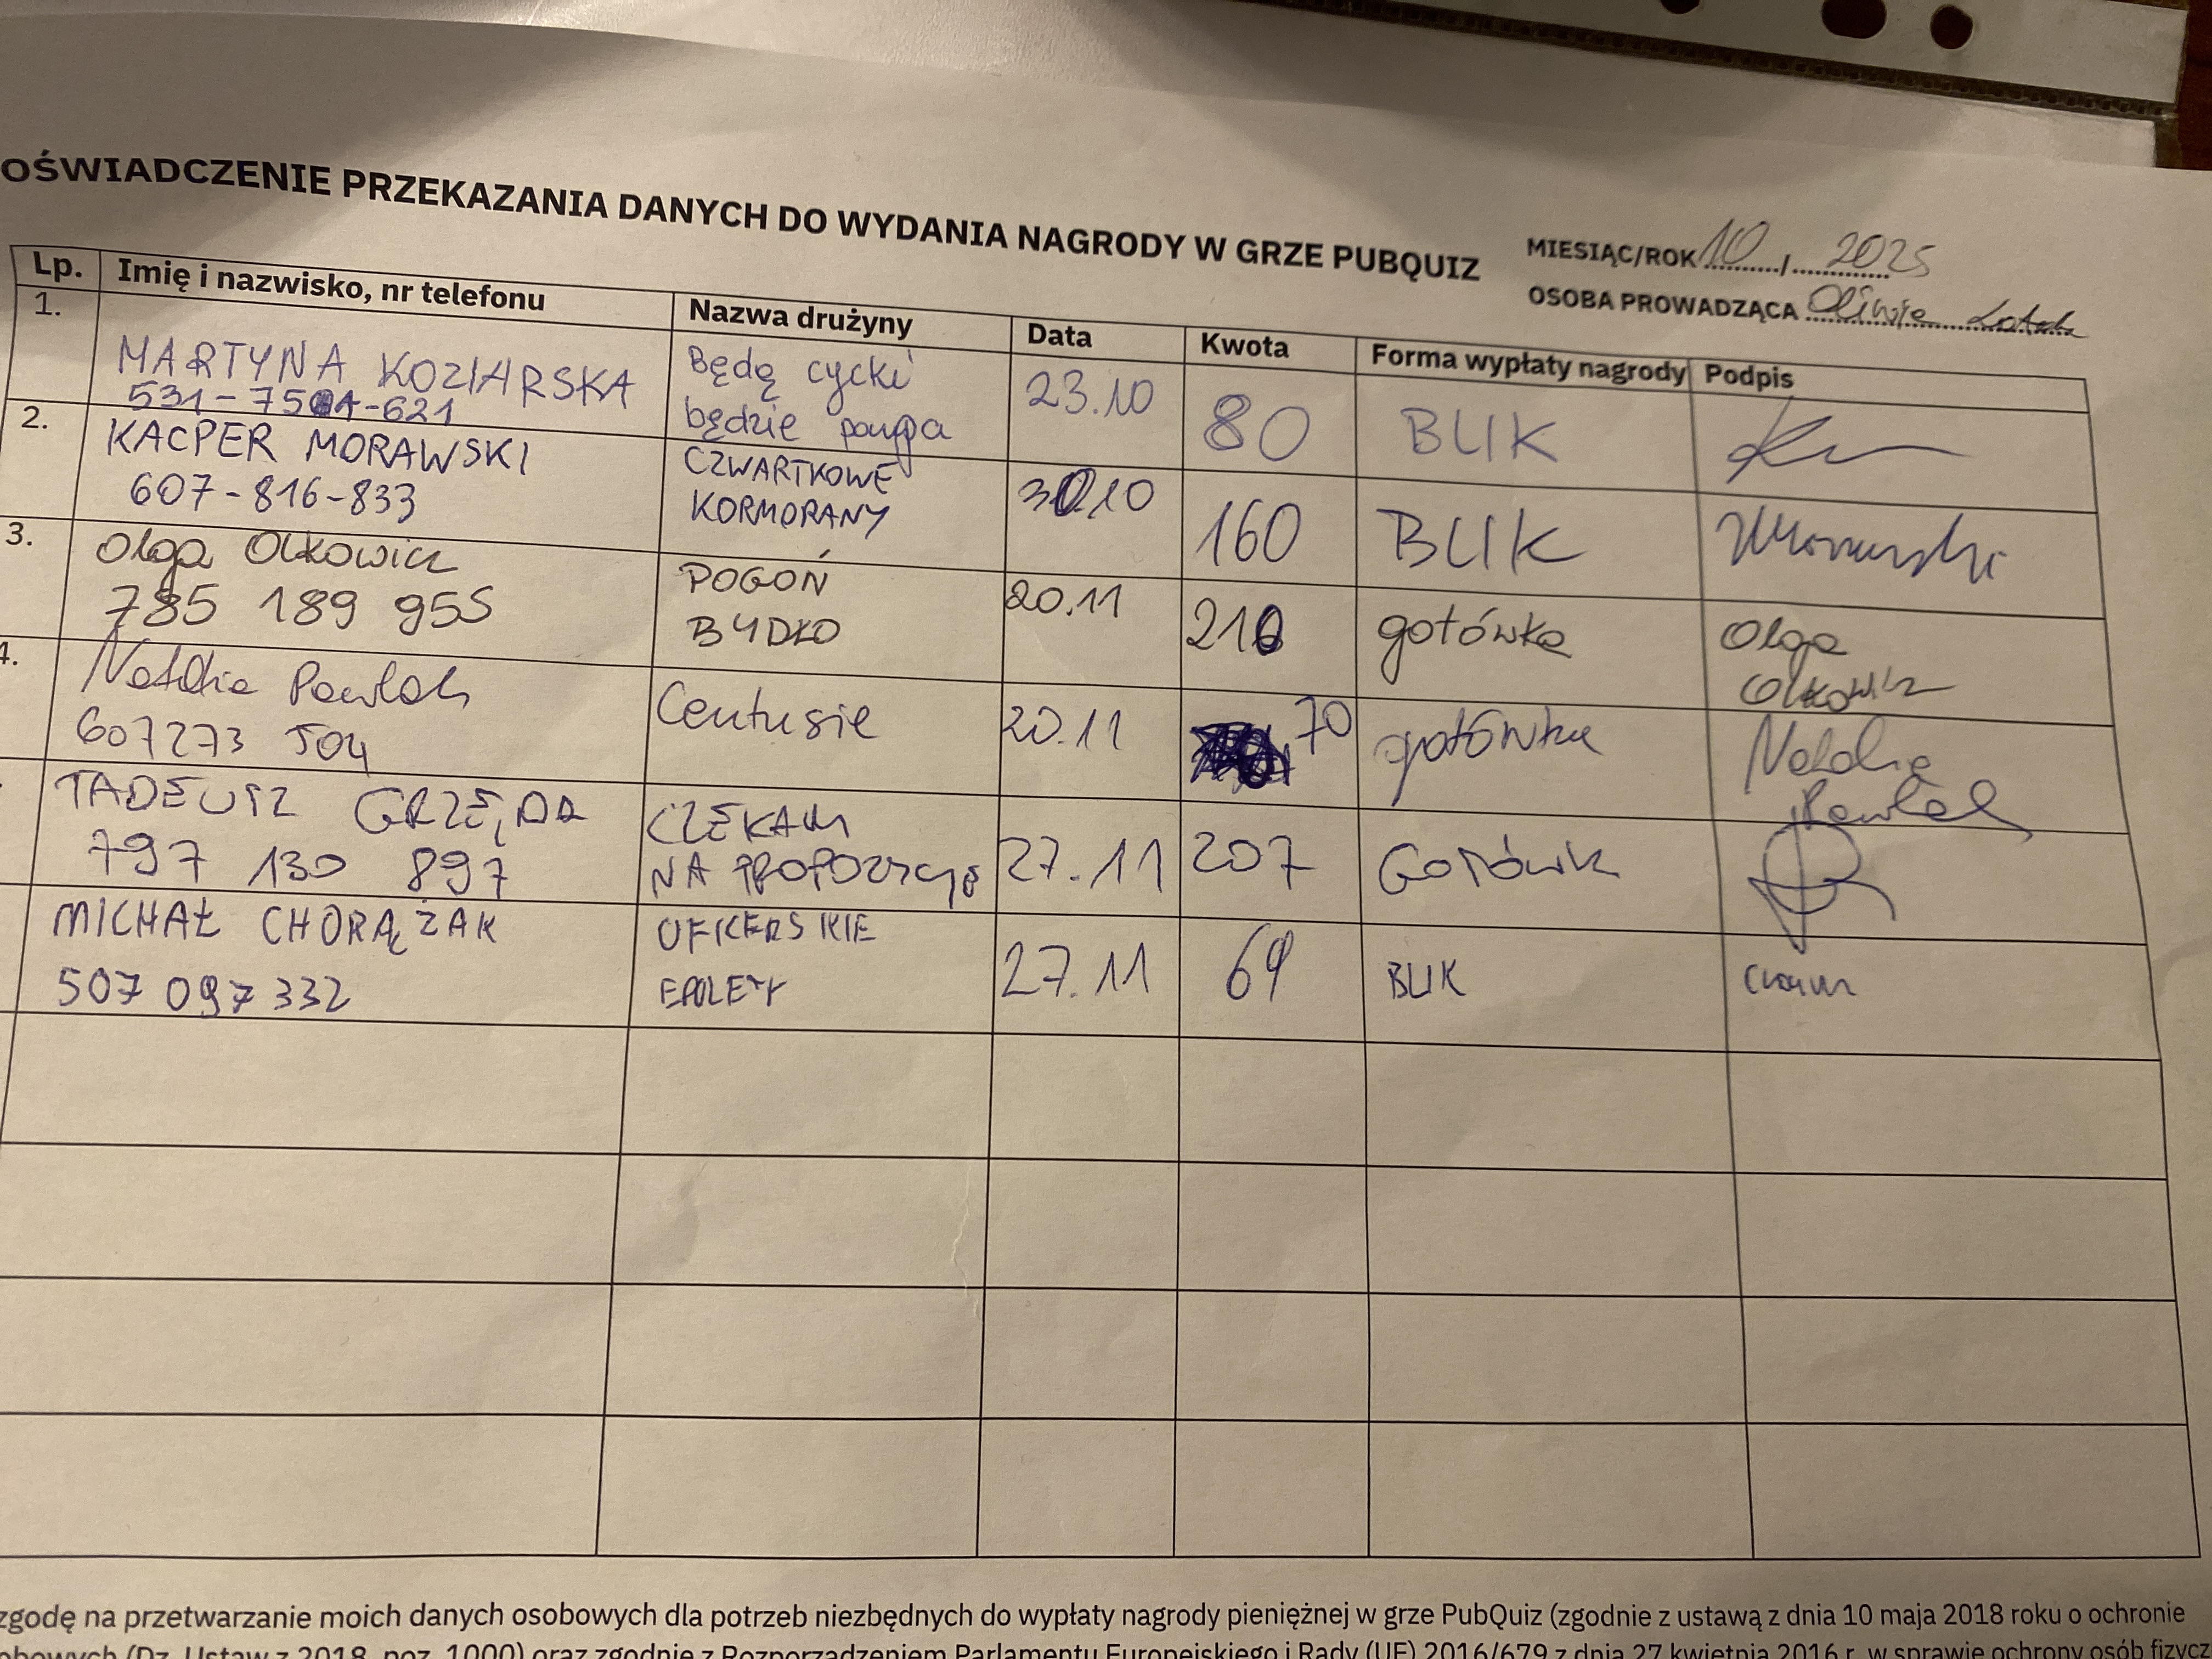 OŚWIADCZENIE PRZEKAZANIA DANYCH DO WYDANIA NAGRODY W GRZE PUBQUIZ
MIESIĄC/ROK 10 / 2025
OSOBA PROWADZĄCA Oliwia
Lp. Imię i nazwisko, nr telefonu Nazwa drużyny Data Kwota Forma wypłaty nagrody Podpis
1. MARTYNA KOZIARSKA Będą cycki 23.10 80 BLIK
531-751-621 będzie pompa
2. KACPER MORAWSKI CZWARTKOWE 30.10 160 BLIK Morawski
607-816-833 KORMORANY
3. Olga Olkowicz POGOŃ 20.11 210 gotówka Olga
785 189 955 BYDŁO Olkowicz
4. Natalia Pawlak Centusie 20.11 70 gotówka Natalia
607273 504 Pawlak
TADEUSZ GRZĘDA CZEKAM 27.11 207 Gotówk
797 130 897 NA PROPOZYCJĘ
MICHAŁ CHORĄŻAK OFICERSKIE 27.11 69 BLIK
507 097 332 EPOLETY
zgodę na przetwarzanie moich danych osobowych dla potrzeb niezbędnych do wypłaty nagrody pieniężnej w grze PubQuiz (zgodnie z ustawą z dnia 10 maja 2018 roku o ochronie
obowych (Dz. Ustaw z 2018, poz. 1000) oraz zgodnie z Rozporządzeniem Parlamentu Europejskiego i Rady (UE) 2016/679 z dnia 27 kwietnia 2016 r. w sprawie ochrony osób fizycz